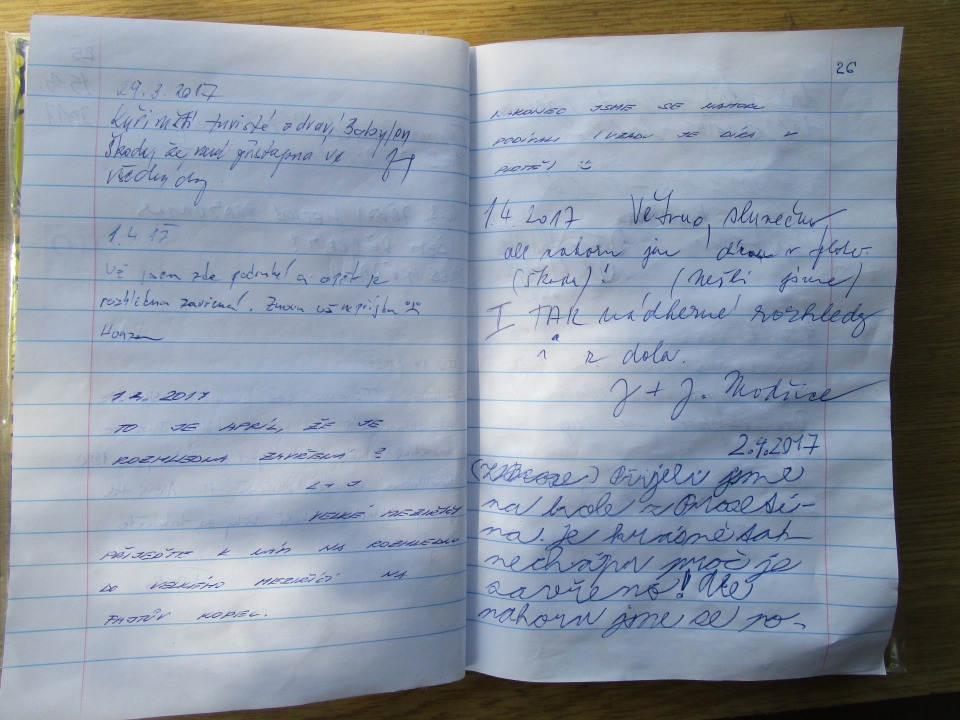 29.3.2017
Kuřimští turisté zdraví Babylon
Škoda, že není přístupná ve
všední dny
1.4.17
Už jsem zde podruhé a opět je
rozhledna zavřená. Znovu už nepřijdu
Honza
1.4. 2017
TO JE APRÍL, ŽE JE
ROZHLEDNA ZAVŘENÁ?
L + J
VELKÉ MEZIŘÍČÍ
PŘIJEĎTE K NÁM NA ROZHLEDNU
DO VELKÉHO MEZIŘÍČÍ NA
FAJTŮV KOPEC.
26
NAKONEC JSME SE NAHORU
PODÍVALI I VZADU JE DÍRA V
PLOTĚ!
1.4. 2017 Větrno, slunečno,
ale nahoru jen dírou v plotu.
(škoda)! (Nešli jsme)
I TAK nádherné rozhledy
i z dola.
J + J. Modřice
2.4.2017
Přijeli jsme
na kole z Prosetí-
na. je krásně tak
nechápu proč je
zavřeno! Ale
nahoru jsme se po-